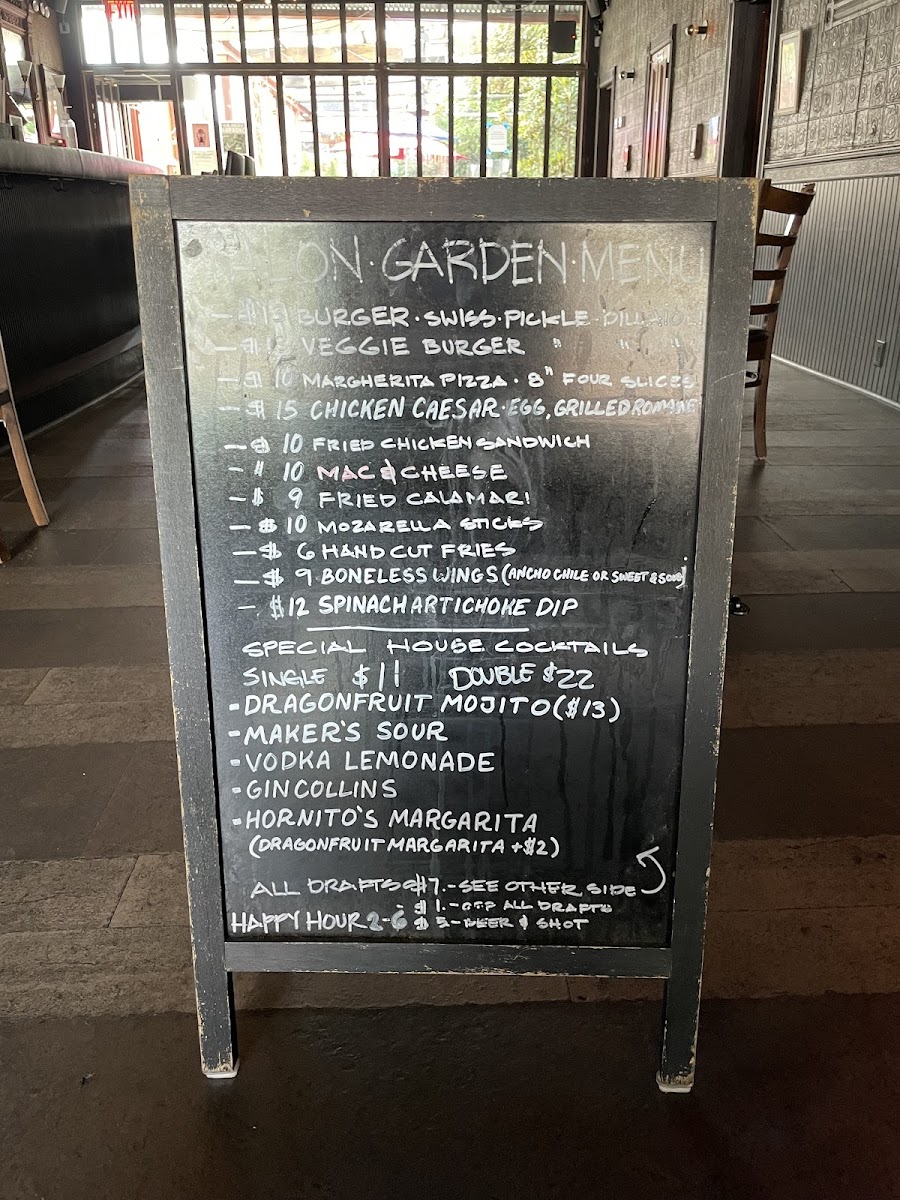 LON · GARDEN · MENU
BURGER · SWISS · PICKLE ·
VEGGIE BURGER " " "
- $ 10 MARGHERITA PIZZA · 8" FOUR SLICES
- $ 15 CHICKEN CAESAR · EGG, GRILLED ROMAINE
- $ 10 FRIED CHICKEN SANDWICH
- " 10 MAC & CHEESE
- $ 9 FRIED CALAMARI
- $ 10 MOZARELLA STICKS
- $ 6 HAND CUT FRIES
- $ 9 BONELESS WINGS (ANCHO CHILE OR SWEET & SOUR)
- $12 SPINACH ARTICHOKE DIP
SPECIAL HOUSE COCKTAILS
SINGLE $11 DOUBLE $22
- DRAGONFRUIT MOJITO ($13)
- MAKER'S SOUR
- VODKA LEMONADE
- GIN COLLINS
- HORNITO'S MARGARITA
(DRAGONFRUIT MARGARITA +$2)
ALL DRAFTS $7.- SEE OTHER SIDE
$1.- OFF ALL DRAFTS
HAPPY HOUR 2-6 $5.- BEER & SHOT